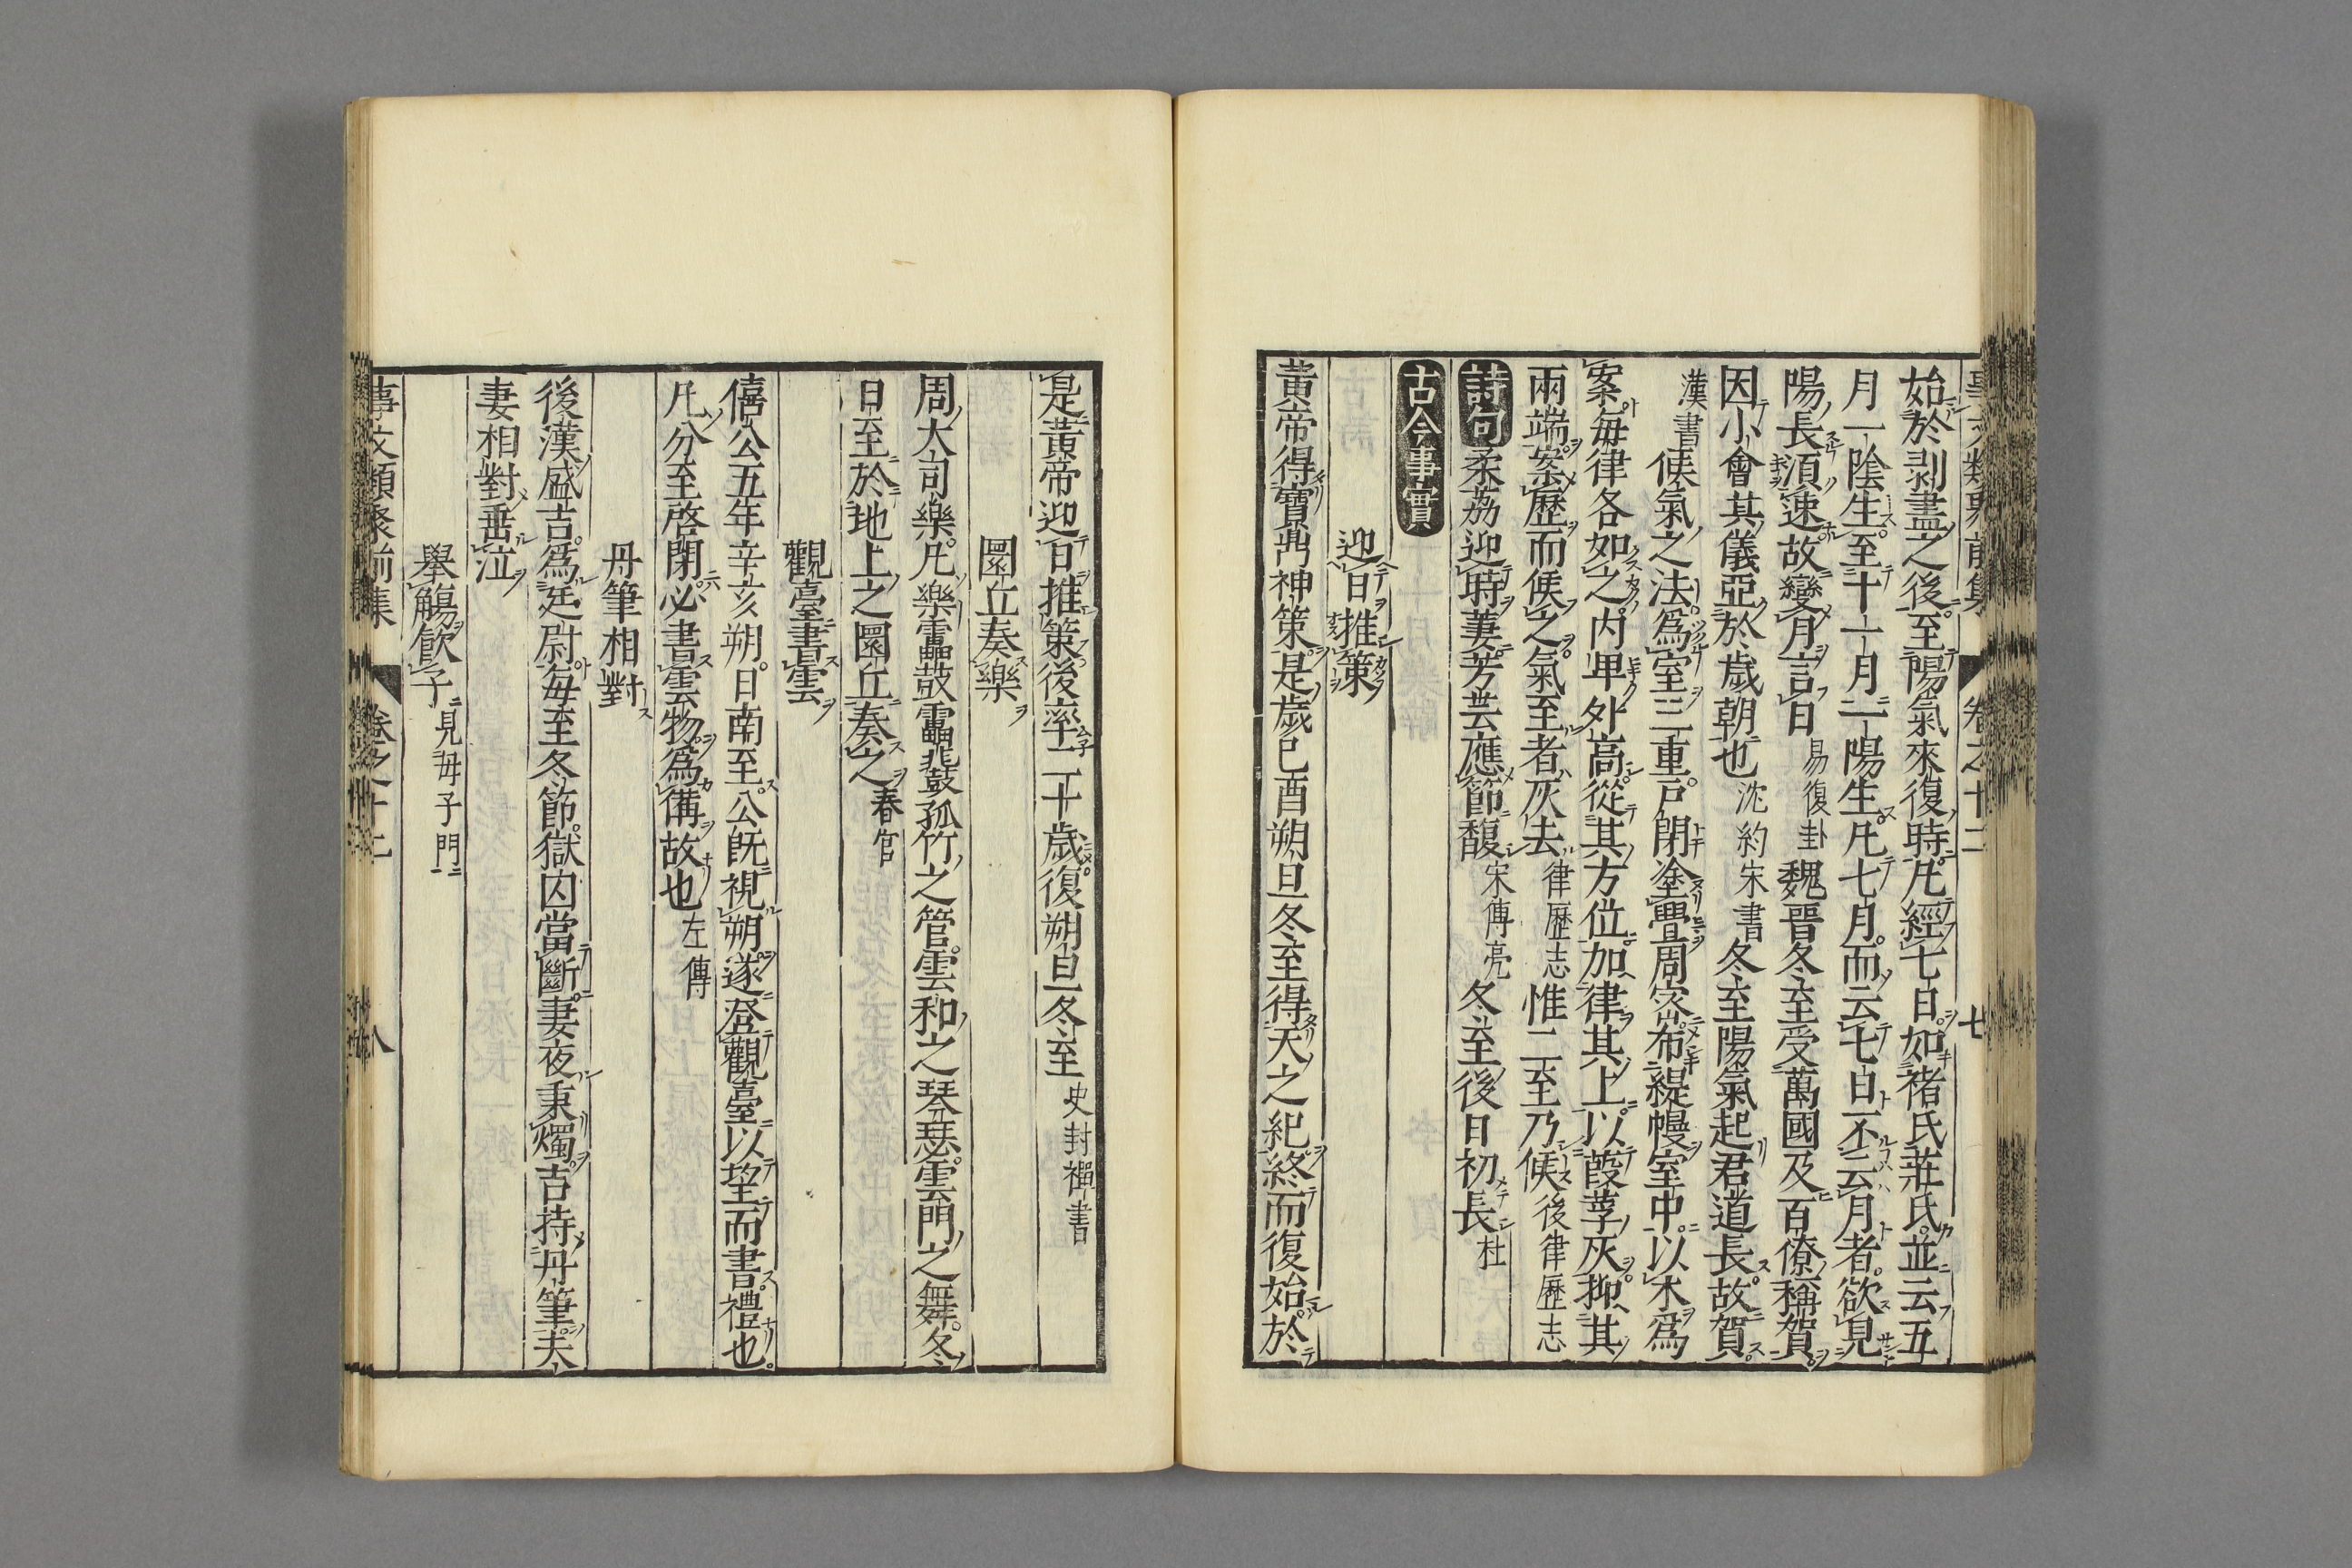 事文類聚前集 卷之十二 七
始於剥盡之後至陽氣來復時凡經七日如褚氏莊氏並云五
月一陰生至十一月一陽生凡七月而云七日不云月者欲見
陽長須速故變月言日易復卦魏晉冬至受萬國及百僚稱賀
因小會其儀亞於歲朝也沈約宋書冬至陽氣起君道長故賀
漢書候氣之法爲室三重戸閉塗釁周宻布緹幔室中以木爲
案每律各如之内卑外高從其方位加律其上以葭莩灰抑其
兩端案歷而候之氣至者灰去律歷志惟二至乃候後律歷志
詩句柔荔迎時萋芳芸應節馥宋傅亮冬至後日初長杜
古今事實
迎日推策
黃帝得寶鼎神策是歲己酉朔旦冬至得天之紀終而復始於
是黃帝迎日推策後率二十歲復朔旦冬至史封禪書
圜丘奏樂
周大司樂凡樂靁鼓靁鼗孤竹之管雲和之琴瑟雲門之舞冬
日至於地上之圜丘奏之春官
觀臺書雲
僖公五年辛亥朔日南至公既視朔遂登觀臺以望而書禮也
凡分至啓閉必書雲物爲備故也左傳
丹筆相對
後漢盛吉爲廷尉每至冬節獄囚當斷妻夜秉燭吉持丹筆夫
妻相對垂泣
舉觴飲子見母子門
事文類聚前集 卷之十二 八